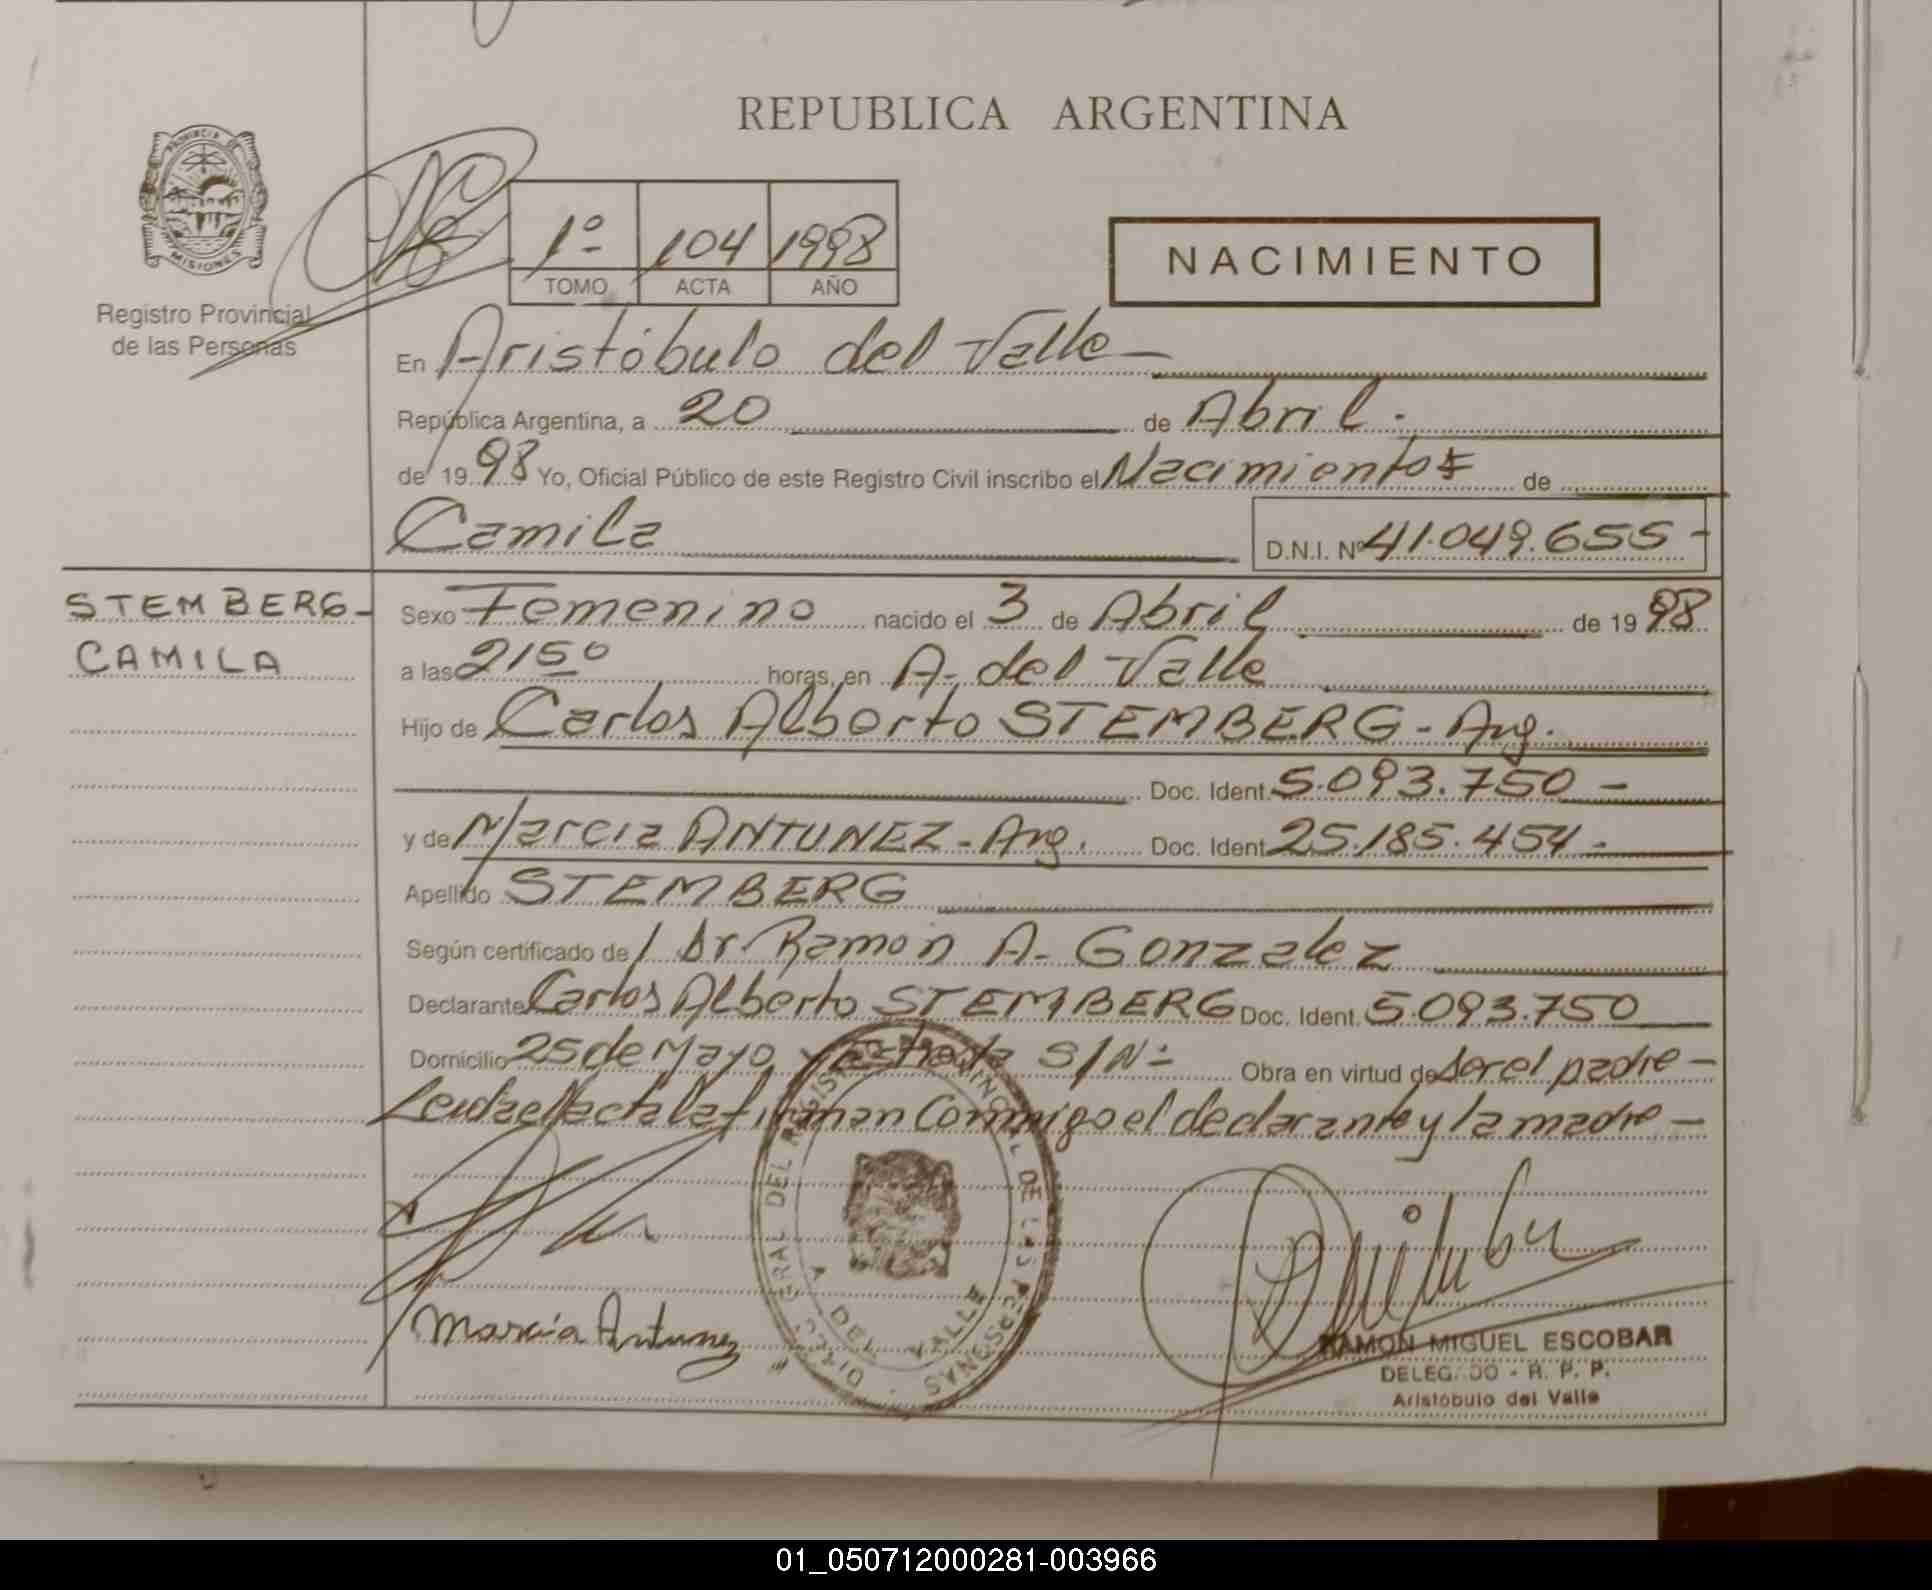 REPUBLICA ARGENTINA
PROVINCIA DE
MISIONES
Registro Provincial
de las Personas
1º 104 1998
TOMO ACTA AÑO
NACIMIENTO
En Aristóbulo del Valle
República Argentina, a 20 de Abril.
de 1998 Yo, Oficial Público de este Registro Civil inscribo el Nacimiento de
Camila D.N.I. Nº 41.049.655-
STEMBERG-
CAMILA
Sexo Femenino nacido el 3 de Abril de 1998
a las 2150 horas, en A. del Valle
Hijo de Carlos Alberto STEMBERG - Arg.
Doc. Ident. 5.093.750 -
y de Marcia ANTUNEZ - Arg. Doc. Ident. 25.185.454 -
Apellido STEMBERG
Según certificado de / Dr. Ramon A. Gonzalez
Declarante Carlos Alberto STEMBERG Doc. Ident. 5.093.750
Domicilio 25 de Mayo y Estrada S/Nº Obra en virtud de ser el padre -
Leida el acta la firman Conmigo el declarante y la madre -
DIREC. GRAL DEL REGISTRO PROVINCIAL DE LAS PERSONAS
A DEL VALLE
Marcia Antunez
RAMON MIGUEL ESCOBAR
DELEGADO - R. P. P.
Aristobulo del Valle
01_050712000281-003966